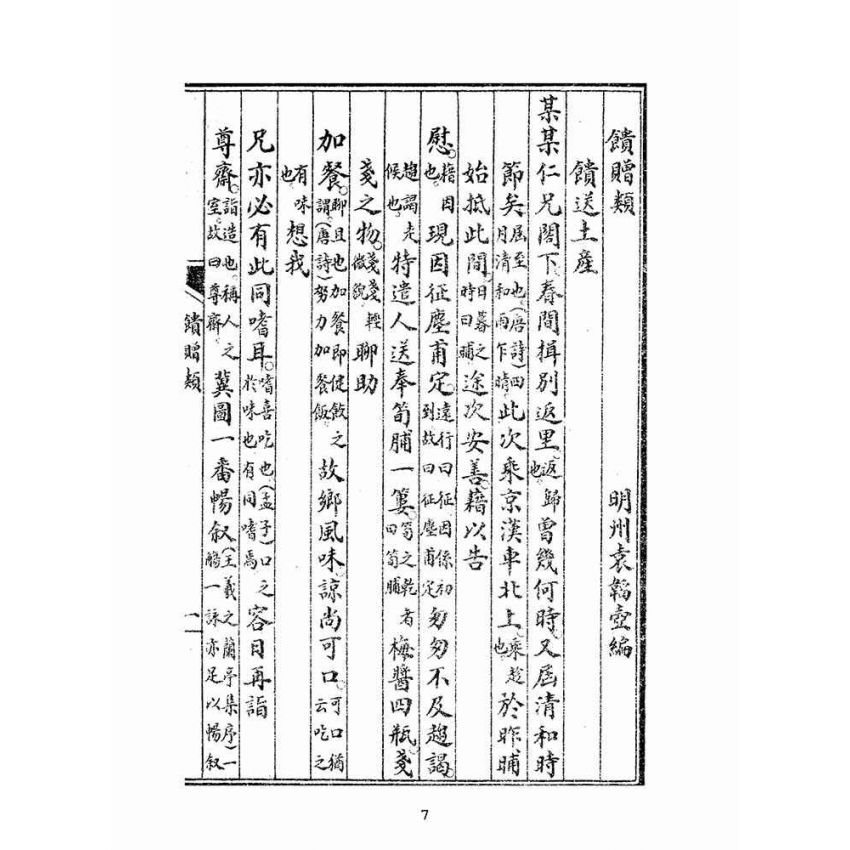 饋贈類 明州袁韜壺編
饋送土產
某某仁兄閣下春間揖別返里。返歸也。曾幾何時。又屆清和時
節矣。屆至也。(唐詩)四月清和雨乍晴。此次乘京漢車北上。乘趁也。於昨晡
始抵此間。日暮之時曰晡。途次安善。藉以告
慰。藉因也。現因征塵甫定。遠行曰征因係初到故曰征塵甫定匆匆不及趨謁。
趨謁走候也。特遣人送奉筍脯一簍。筍之乾者曰筍脯梅醬四瓶。戔
戔之物。戔戔輕微貌聊助
加餐。聊且也加餐即健飯之謂。(唐詩)努力加餐飯。故鄉風味。諒尚可口。可口猶云吃之
有味也。想我
兄亦必有此同嗜耳。嗜喜吃也。(孟子)口之於味也有同嗜焉容日再詣
尊齋。詣造也。稱人之室。故曰尊齋。冀圖一番暢叙。(王羲之蘭亭集序)一觴一詠亦足以暢叙
饋贈類 一
7